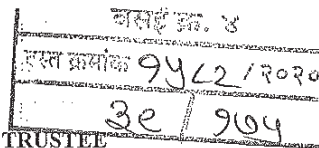 वसई क्र. ४
दस्त क्रमांक १५८२ / २०२०
३९ / १७५
TRUSTEE